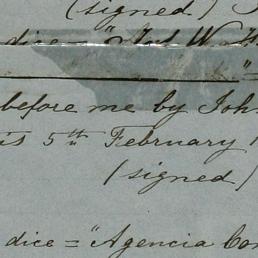 (signed)
dice = "Jos W.
before me by Joh
is 5th February 1
(signed)
dice = "Agencia Con